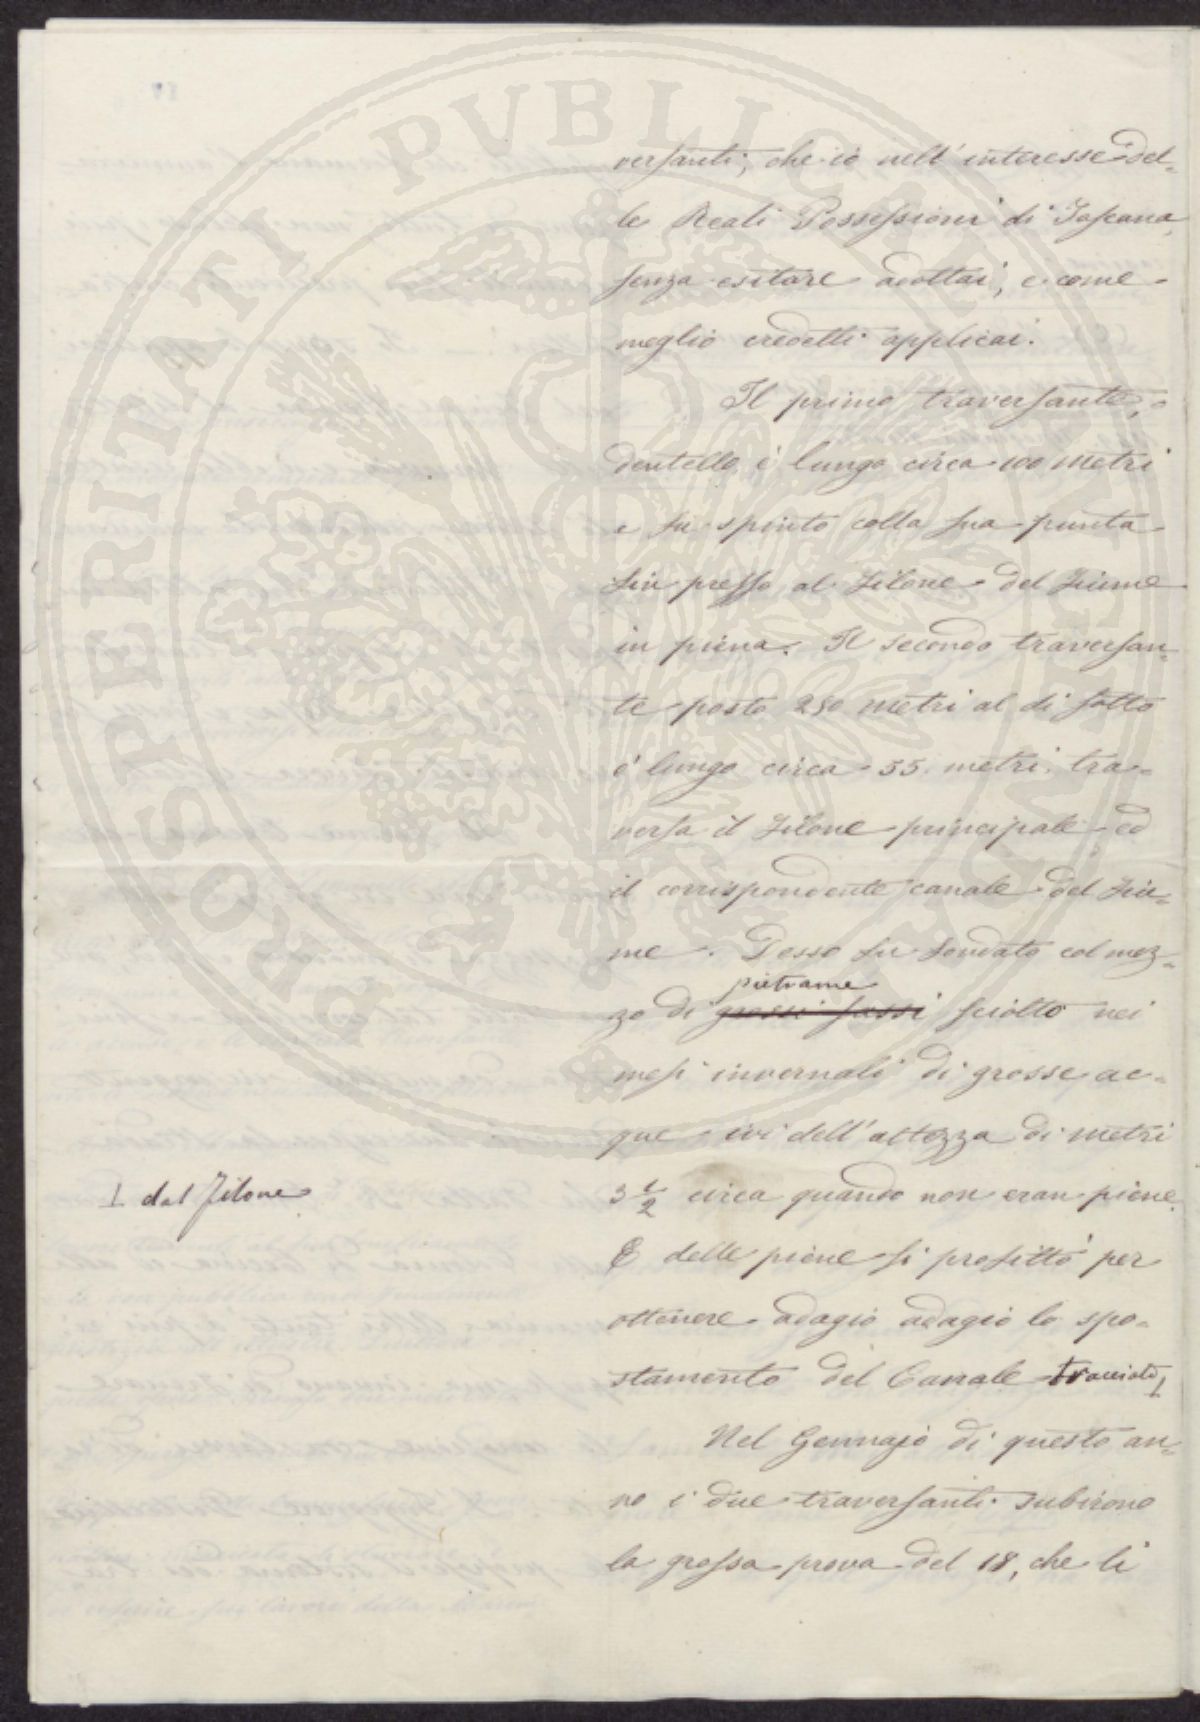 PROSPERITATI PUBLICAE
versanti; che io nell' interesse del-
le Reali Possessioni di Toscana,
senza esitare adottai, e come
meglio credetti applicai.
Il primo traversante,
dentello è lungo circa 100 metri
e fu spinto colla sua punta
fin presso al Filone del Fiume
in piena. Il secondo traversan-
te posto 250 metri al di sotto
è lungo circa 55 metri tra-
versa il Filone principale ed
il corrispondente canale del Fiu-
me. Desso fu fondato col mez-
pietrame
zo di grossi sassi sciolto nei
mesi invernali di grosse ac-
que ivi dell'altezza di metri
3 1/2 circa quando non eran piene.
E delle piene si profittò per
ottenere adagio adagio lo spo-
stamento del Canale tracciato ⊥
⊥ dal Filone
Nel Gennajo di questo an-
no i due traversanti subirono
la grossa prova del 18, che li